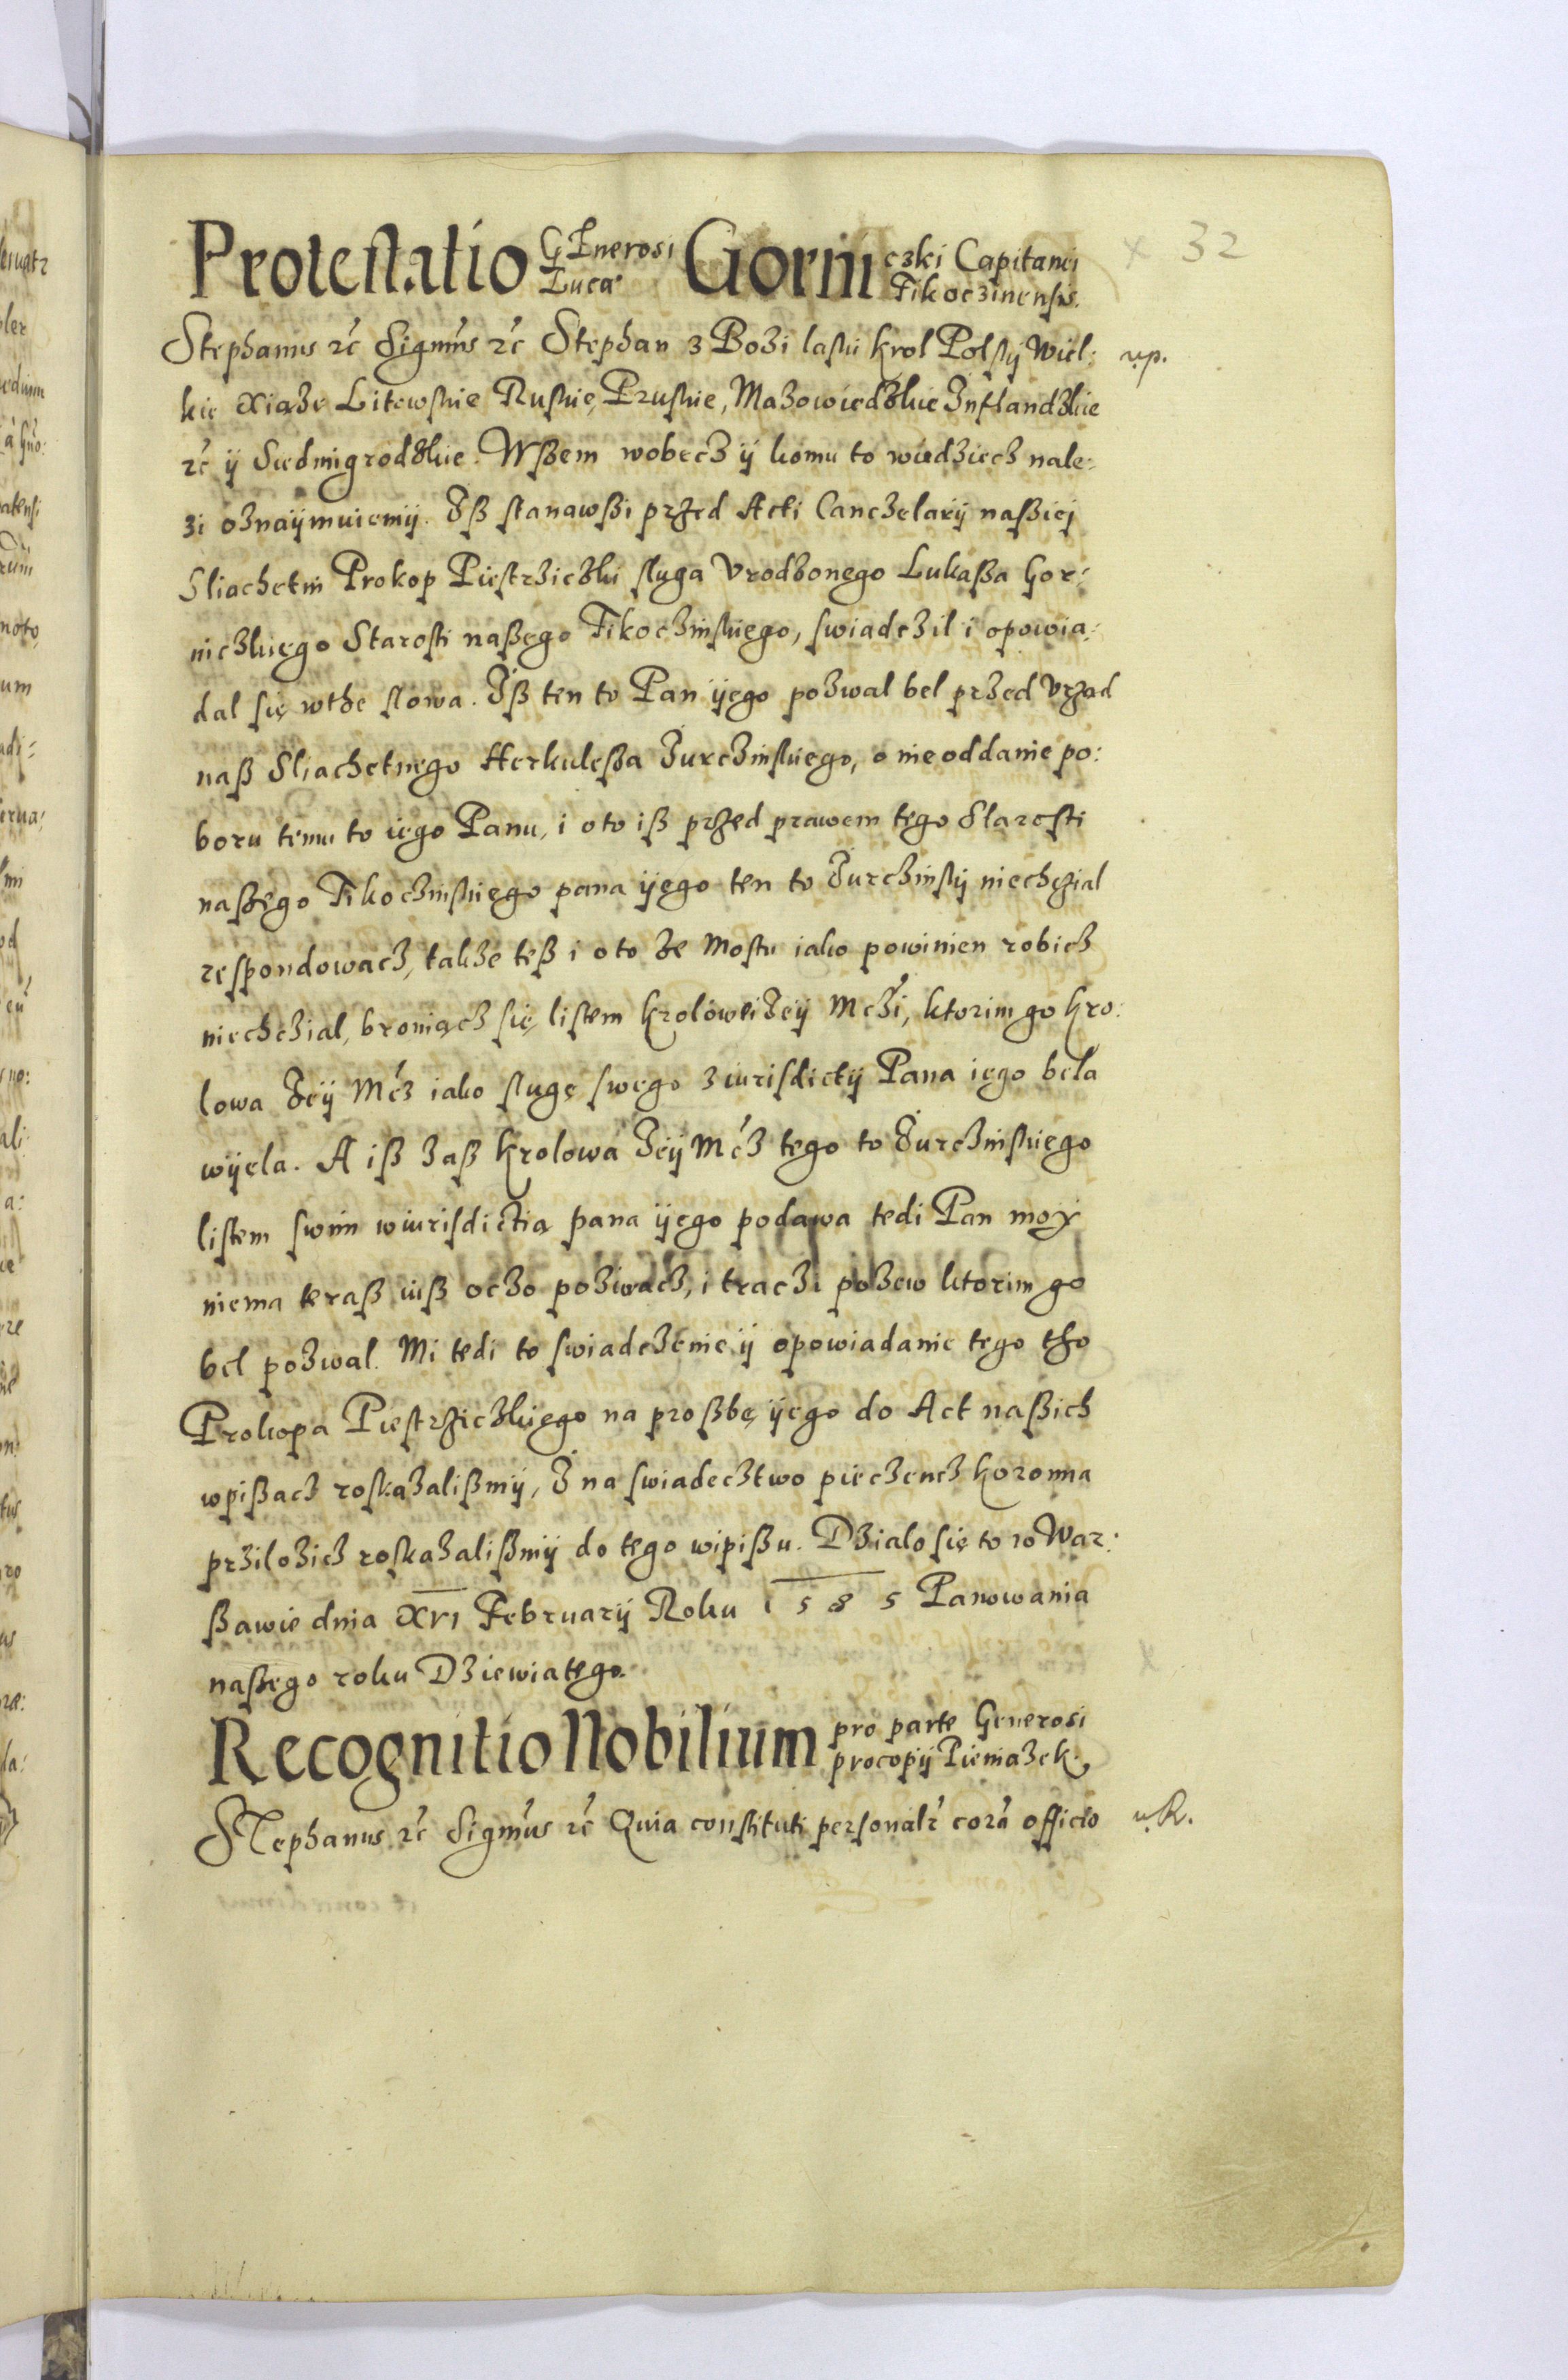 32
Protestatio GEnerosi Lucæ Gorniczki Capitanei Tikoczinensis.
Stephanus etc Sigmus etc Stephan z Bozi laski krol Polsky Wiel:
kie Xiąze Litewskie Ruskie, Pruskie, Mazowiedzkie Inflandzkie
etc ÿ Siedmigrodzkie. Wßem wobecz ÿ komu to wiedziecz nale:
zi oznaÿmuiemÿ. Iß stanawßi przed Acti Canczelariÿ naßiej
Sliachetni Prokop Piestrziczki sluga Vrodzonego Lukaßa Gor:
niczkiego Starosti naßego Tikoczinskiego, swiadczil i opowia:
dal się wthe slowa. Iß ten to Pan ÿego pozwal bel przed Vrząd
naß Sliachetnego Herkuleßa Jurczinskiego, o nieoddanie po:
boru temu to iego Panu, i oto iß przed prawem tego Starosti
naßego Tikoczinskiego pana ÿego ten to Jurczinskÿ niechczial
respondowacz, takze teß i oto ze mostu iako powinien robicz
niechczial, broniącz się listem krolowei Jeÿ Mczi, ktorim go kro:
lowa Jeÿ Mcz iako slugę swego z iurisdictÿ Pana iego bela
wÿela. A iß zaß krolowa Jeÿ Mcz tego to Jurczinskiego
listem swim wiurisdictią pana ÿego podawa tedi Pan moÿ
niema teraß iuß oczo poziwacz, i traczi pozew ktorim go
bel pozwal. Mi tedi to swiadczenie ÿ opowiadanie tego tho
Prokopa Piestrziczkiego na proßbę ÿego do Act naßich
wpißacz roskazalißmÿ, I na swiadecztwo pieczencz koronna
prziłozicz roskazalißmÿ do tego wipißu. Dzialo się to w War:
ßawie dnia XVI Februarÿ Roku 1585 Panowania
naßego roku Dziewiątego.
Recognitio Nobilium pro parte Generosi procopÿ Pieniazek.
Stephanus etc Sigmus etc Quia constituti personalr corã officio